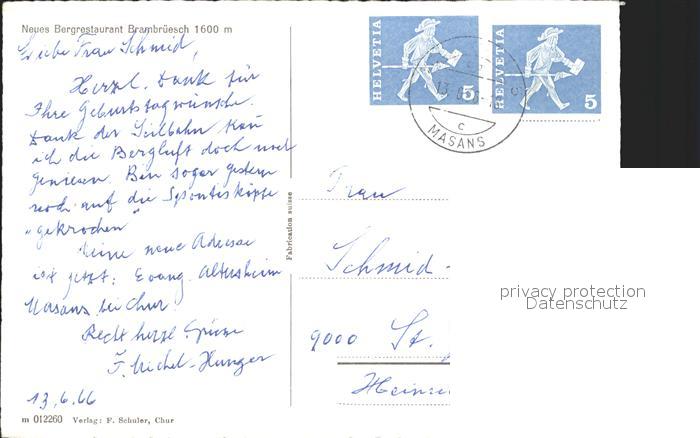 Neues Bergrestaurant Brambrüesch 1600 m
Liebe Frau Schmid,
Herzl. Dank für
Ihre Geburtstagwünsche.
Dank der Seilbahn kan
ich die Bergluft doch noch
geniesen. Bin sogar gestern
noch auf die Spontisköpfe
"gekrochen"
Meine neue Adresse
ist jetzt: Evang. Altersheim
Masans bei Chur.
Recht herzl. Grüsse
F. Michel-Hunger
13.6.66
m 012260 Verlag: F. Schuler, Chur
Fabrication suisse
HELVETIA 5
HELVETIA 5
MASANS
Frau
Schmid-
9000 St.
privacy protection
Datenschutz